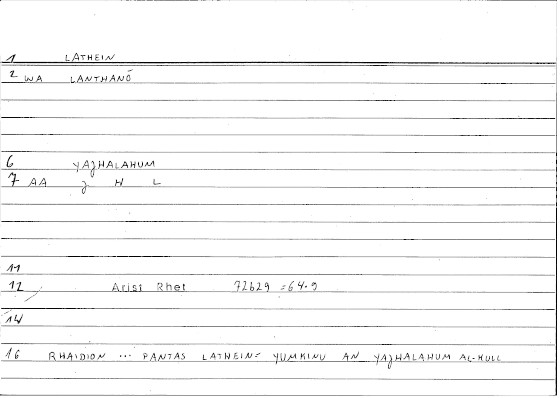 1 LATHEIN
2 WA LANTHANŌ
6 YAJHALAHUM
7 AA J H L
11
12 Arist Rhet 72b29 = 64.9
14
16 RHAIDION ... PANTAS LATHEIN= YUMKINU AN YAJHALAHUM AL-KULL